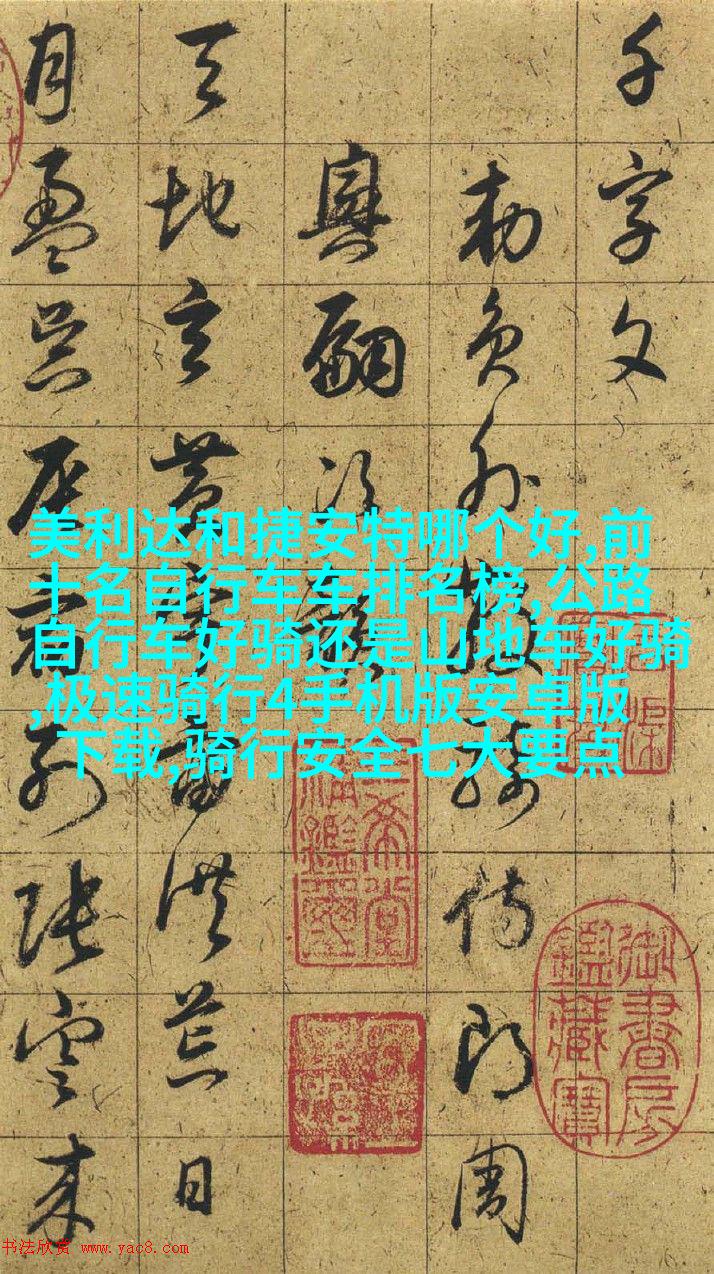 千字文
勑員外散騎侍郎周
興嗣次韻
天地玄黃宇宙洪荒日
月盈昃辰宿列張寒来
美利达和捷安特哪个好,前
十名自行车车排名榜,公路
自行车好骑还是山地车好骑
,极速骑行4手机版安卓版
下载,骑行安全七大要点
三希堂
精鑑璽
御書房
鑑藏寶
书法欣赏 www.yac8.com